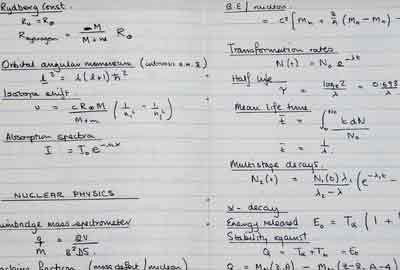 Rydberg Const.
R₀ = R∞
R_hydrogen = M / (M + m) R∞
Orbital angular momentum
l² = l(l+1)ħ²
Isotope shift.
υ = cR∞M / (M+m) (1/n₁² − 1/n₂²)
Absorption spectra
I = I₀e
NUCLEAR PHYSICS
Bainbridge mass spectrometer
q/M = 2V / B²
fraction (mass defect / nucleon)
B.E / nucleon
= c² [Mₙ + Z/A (M_H − Mₙ) −
Transformation rates
N(t) = N₀e^−λt
Half life
τ = log_e 2 / λ = 0.693
Mean life time
t̄ = ∫₀^N₀ t dN / N₀
t̄ = 1/λ
Multistage decays.
N₂(t) = N₁(0)λ₁ / (λ₂ − λ₁) (e^−λ₁t −
α - decay
Energy released E₀ = Tα (1 +
Stability against
Q = Tα + T_b = E₀
Q = M(Z,A) − M(Z-2, A-4)